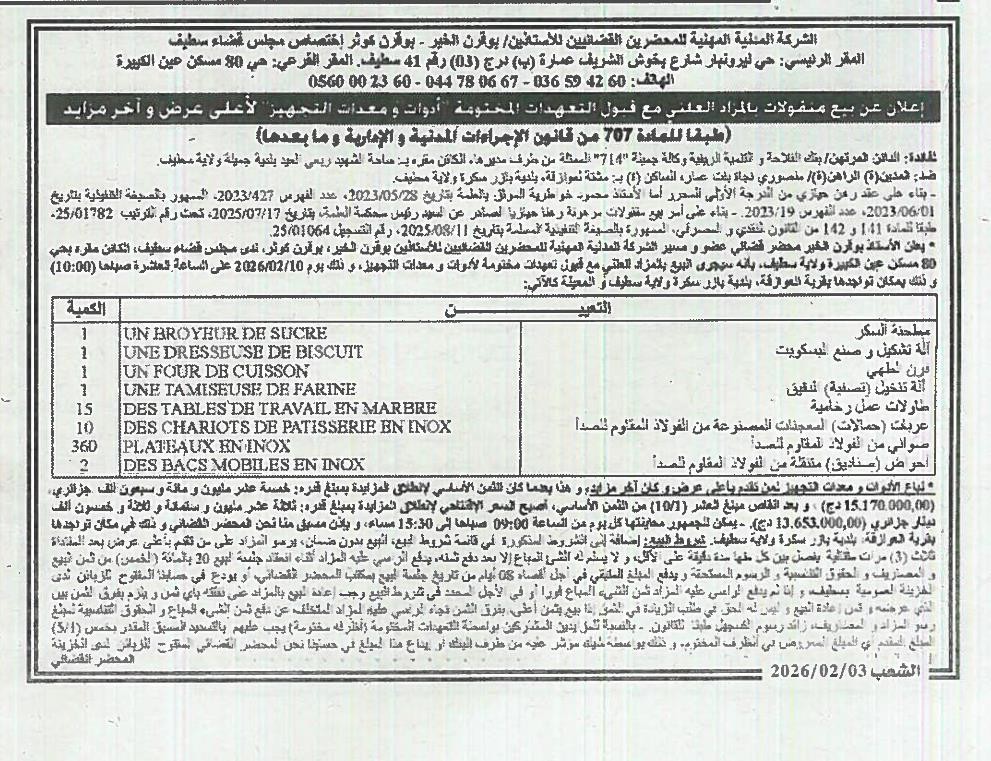 الشركة المدنية المهنية للمحضرين القضائيين للأستاذين/ بوقرن الخير - بوقرن كوثر إختصاص مجلس قضاء سطيف
المقر الرئيسي: حي ليرونبار شارع يخوش الشريف عمارة (ب) درج (03) رقم 41 سطيف. المقر الفرعي: حي 80 مسكن عين الكبيرة
الهاتف: 036 59 42 60 - 044 78 06 67 - 0560 00 23 60
إعلان عن بيع منقولات بالمزاد العلني مع قبول التعهدات المختومة "أدوات و معدات التجهيز" لأعلى عرض و آخر مزايد
(طبقا للمادة 707 من قانون الإجراءات المدنية و الإدارية و ما بعدها)
لفائدة: الدائن المرتهن/ بنك الفلاحة و التنمية الريفية وكالة جميلة "714" الممثلة من طرف مديرها، الكائن مقره بـ: ساحة الشهيد ربعي العيد بلدية جميلة ولاية سطيف.
ضد: المدين(ة) الراهن(ة)/ منصوري نجاة بنت عمار، الساكن (ة) بـ: مشتة لعوازقة، بلدية بازر سكرة ولاية سطيف.
- بناء على عقد رهن حيازي من الدرجة الأولى المحرر أما الأستاذ محمود خواطرية الموثق بالعلمة بتاريخ 2023/05/28، عدد الفهرس 2023/427، الممهور بالصيغة التنفيذية بتاريخ
2023/06/01، عدد الفهرس 2023/19. - بناء على أمر بيع منقولات مرهونة رهنا حيازيا الصادر عن السيد رئيس محكمة العلمة، بتاريخ 2025/07/17، تحت رقم الترتيب 25/01782،
طبقا للمادة 141 و 142 من القانون النقدي و المصرفي، الممهورة بالصيغة التنفيذية المسلمة بتاريخ 2025/08/11، رقم التسجيل 25/01064.
* يعلن الأستاذ بوقرن الخير محضر قضائي عضو و مسير الشركة المدنية المهنية للمحضرين القضائيين للأستاذين بوقرن الخير، بوقرن كوثر، لدى مجلس قضاء سطيف، الكائن مقره بحي
80 مسكن عين الكبيرة ولاية سطيف، بأنه سيجرى البيع بالمزاد العلني مع قبول تعهدات مختومة لأدوات و معدات التجهيز، و ذلك يوم 2026/02/10 على الساعة العاشرة صباحا (10:00)
و ذلك بمكان تواجدها بقرية العوازقة، بلدية بازر سكرة ولاية سطيف أو المعينة كالآتي:
التعييـــــــن الكمية
مطحنة السكر UN BROYEUR DE SUCRE 1
آلة تشكيل و صنع البسكويت UNE DRESSEUSE DE BISCUIT 1
فرن الطهي UN FOUR DE CUISSON 1
آلة تنخيل (تصفية) الدقيق UNE TAMISEUSE DE FARINE 1
طاولات عمل رخامية DES TABLES DE TRAVAIL EN MARBRE 15
عربات (حمالات) المعجنات المصنوعة من الفولاذ المقاوم للصدأ DES CHARIOTS DE PATISSERIE EN INOX 10
صواني من الفولاذ المقاوم للصدأ PLATEAUX EN INOX 360
أحواض (صناديق) متنقلة من الفولاذ المقاوم للصدأ DES BACS MOBILES EN INOX 2
* تباع الأدوات و معدات التجهيز لمن تقدم بأعلى عرض و كان آخر مزايد، و هذا بعدما كان الثمن الأساسي لإنطلاق المزايدة بمبلغ قدره: خمسة عشر مليون و مائة و سبعون ألف جزائري،
(15.170.000,00 دج) ، و بعد انقاص مبلغ العشر (10/1) من الثمن الأساسي، أصبح السعر الإفتتاحي لإنطلاق المزايدة بمبلغ قدره: ثلاثة عشر مليون و ستمائة و ثلاثة و خمسون ألف
دينار جزائري (13.653.000,00 دج). يمكن للجمهور معاينتها كل يوم من الساعة 09:00 صباحا إلى 15:30 مساء، و بإذن مسبق منا نحن المحضر القضائي و ذلك في مكان تواجدها
بقرية العوازقة، بلدية بازر سكرة ولاية سطيف. شروط البيع: إضافة إلى الشروط المذكورة في قائمة شروط البيع، البيع بدون ضمان، يرسو المزاد على من تقدم بأعلى عرض بعد المناداة
ثلاث (3) مرات متتالية يفصل بين كل منها مدة دقيقة على الأقل، و لا يسلم له الشيء المباع إلا بعد دفع ثمنه. يدفع الراسي عليه المزاد أثناء انعقاد جلسة البيع 20 بالمائة (الخمس) من ثمن البيع
و المصاريف و الحقوق التناسبية و الرسوم المستحقة و يدفع المبلغ المتبقي في أجل أقصاه 08 أيام من تاريخ جلسة البيع بمكتب المحضر القضائي، أو يودع في حسابنا المفتوح للزبائن لدى
الخزينة العمومية بسطيف، و إذا لم يدفع الراسي عليه المزاد ثمن الشيء المباع فورا أو في الأجل المحدد في شروط البيع وجب إعادة البيع بالمزاد على نفقته بأي ثمن و يلزم بفرق الثمن بين
الذي عرضه و ثمن إعادة البيع و ليس له الحق في طلب الزيادة في الثمن إذا بيع بثمن أعلى،
رسو المزاد و المصاريف، زائد رسوم التسجيل طبقا للقانون. - بالنسبة للمزايدين المشاركين بواسطة التعهدات المختومة (أظرفة مختومة) يجب عليهم بالتسديد المسبق المقدر بخمس (5/1)
المبلغ المقدم أي المبلغ المعروض في الظرف المختوم، و ذلك بواسطة شيك مؤشر عليه من طرف البنك أو إيداع هذا المبلغ في حسابنا نحن المحضر القضائي المفتوح للزبائن لدى الخزينة
المحضر القضائي
الشعب 2026/02/03